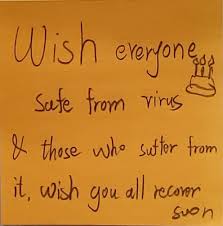 Wish everyone
safe from virus
& those who suffer from
it, wish you all recover
soon